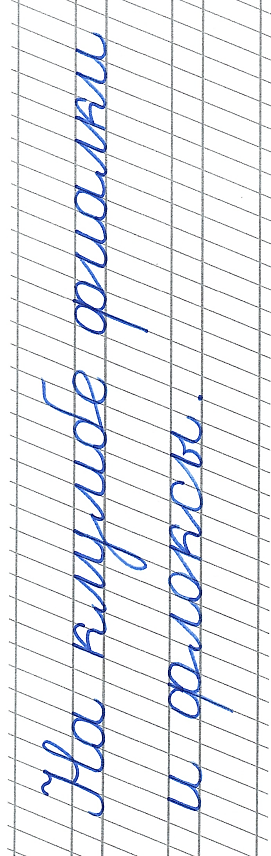 На клумбе фиалки
и флоксы.